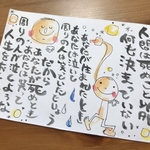 人間は始めご以外
何も決まっていない
あなたがうまれたとき
あなたは泣いて
周りの人は笑っていたでしょう
だから
あなたが死ぬとき
あなたは笑って
周りの人は泣くような
人生を